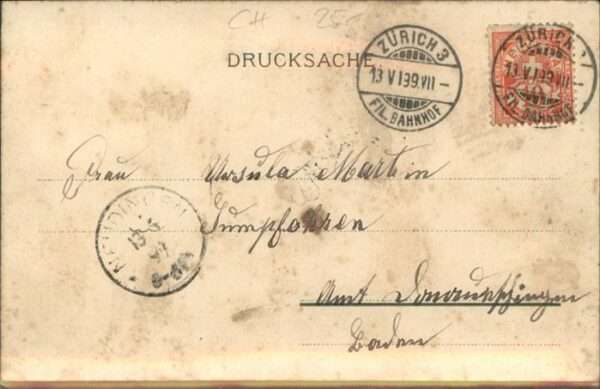 CH 25
DRUCKSACHE
ZÜRICH 3
13 VI 99. VII –
FIL. BAHNHOF
ZÜRICH 3
13 VI 99. VII –
FIL. BAHNHOF
Frau Ursula Martin
Sumpfohren
Amt Donaueschingen
Baden